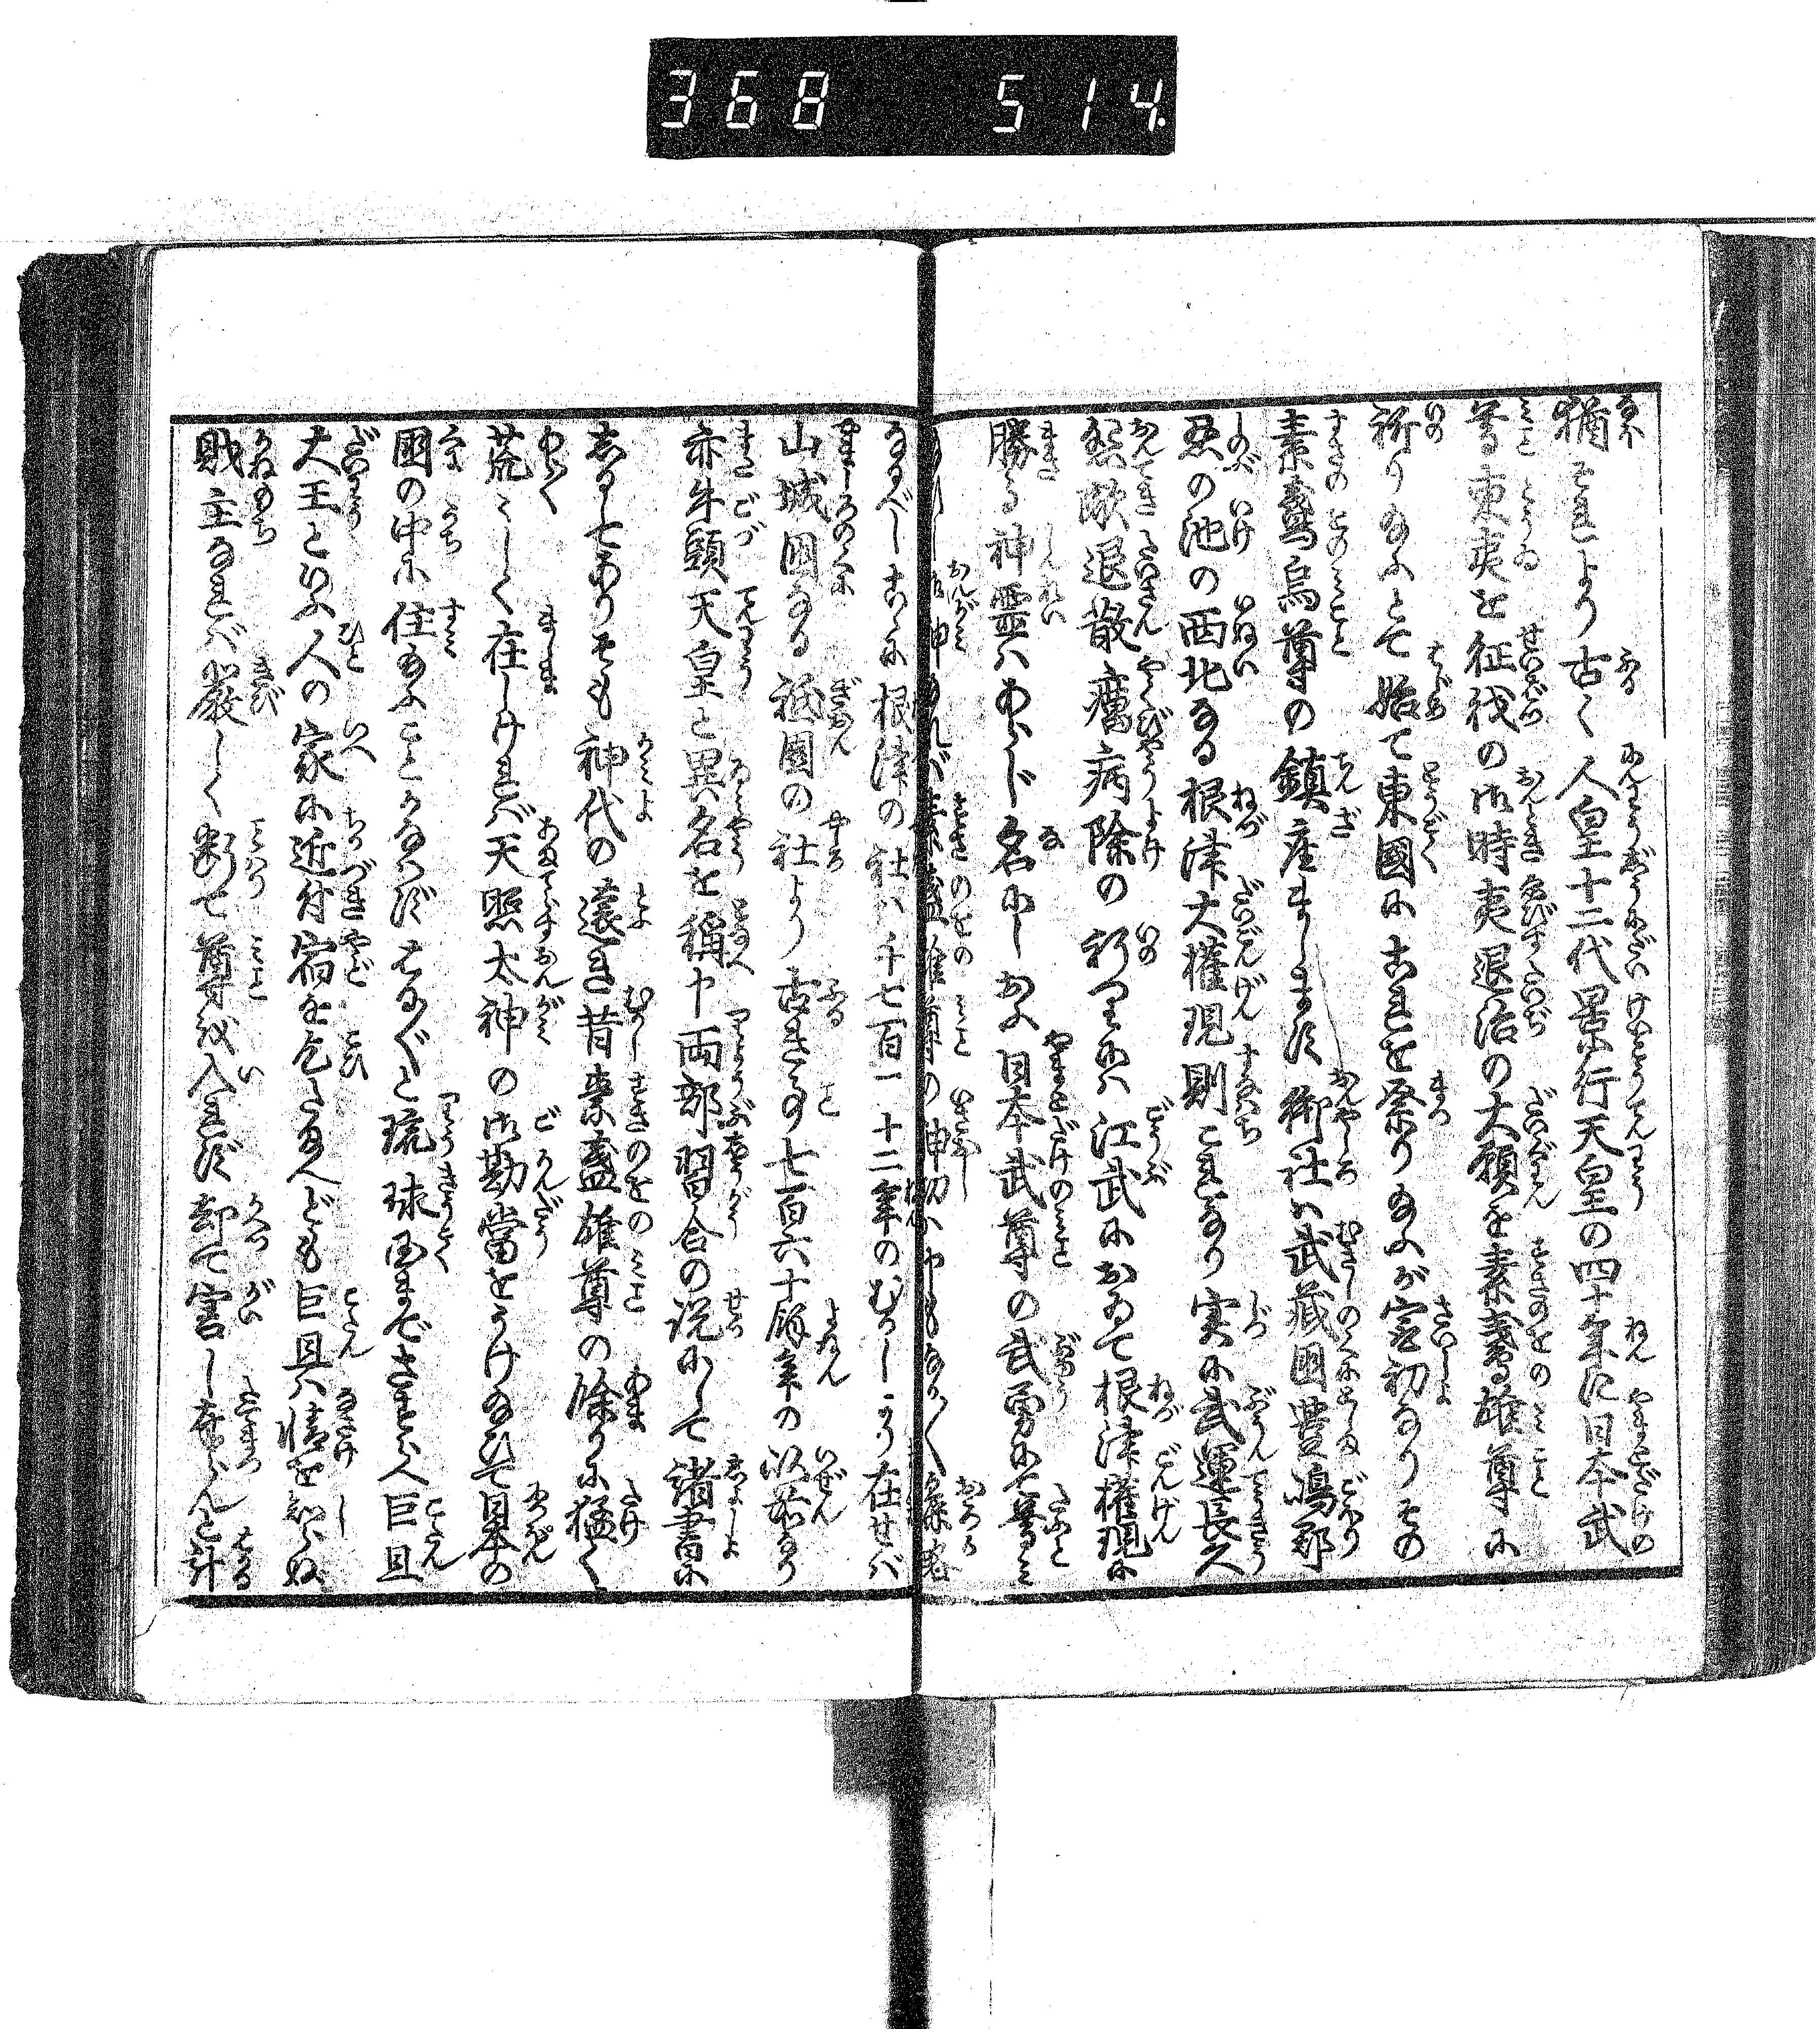 368 514
猶それより古く人皇十二代景行天皇の四十年に日本武
尊東夷を征伐の御時夷退治の大願を素盞雄尊に
祈り給ふとて始て東國に古れを祭り給ふが最初なりその
素盞烏尊の鎮座まします御社は武蔵国豊嶋郡
忍の池の西北なる根津大権現則これなり実に武運長久
怨敵退散癘病除の祈りには江武において根津権現に
勝る神霊はあらじ名にしおふ日本武尊の武勇にて尊み
なるべし古らに根津の社は千七百一十二年のむかしより在せば
山城国なる祇園の社より古き事七百六十餘年の以前なり
亦牛頭天皇と異名を稱や両部習合の説にして諸書に
志るしてありそも神代の遠き昔素盞雄尊の餘りに猛く
荒々しく在しければ天照太神の御勘當をうけ給ひて日本の
國の中に住給ふことかなはずはる〴〵と琉球国までさまよへ巨旦
大王といふ人の家に近付宿を乞たまへども巨旦は情を知らぬ
財主なれば厳しく断て尊を入れず却て害し奉らんと計